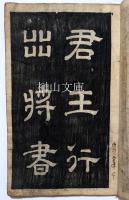 君王行
出將書
榊山文庫